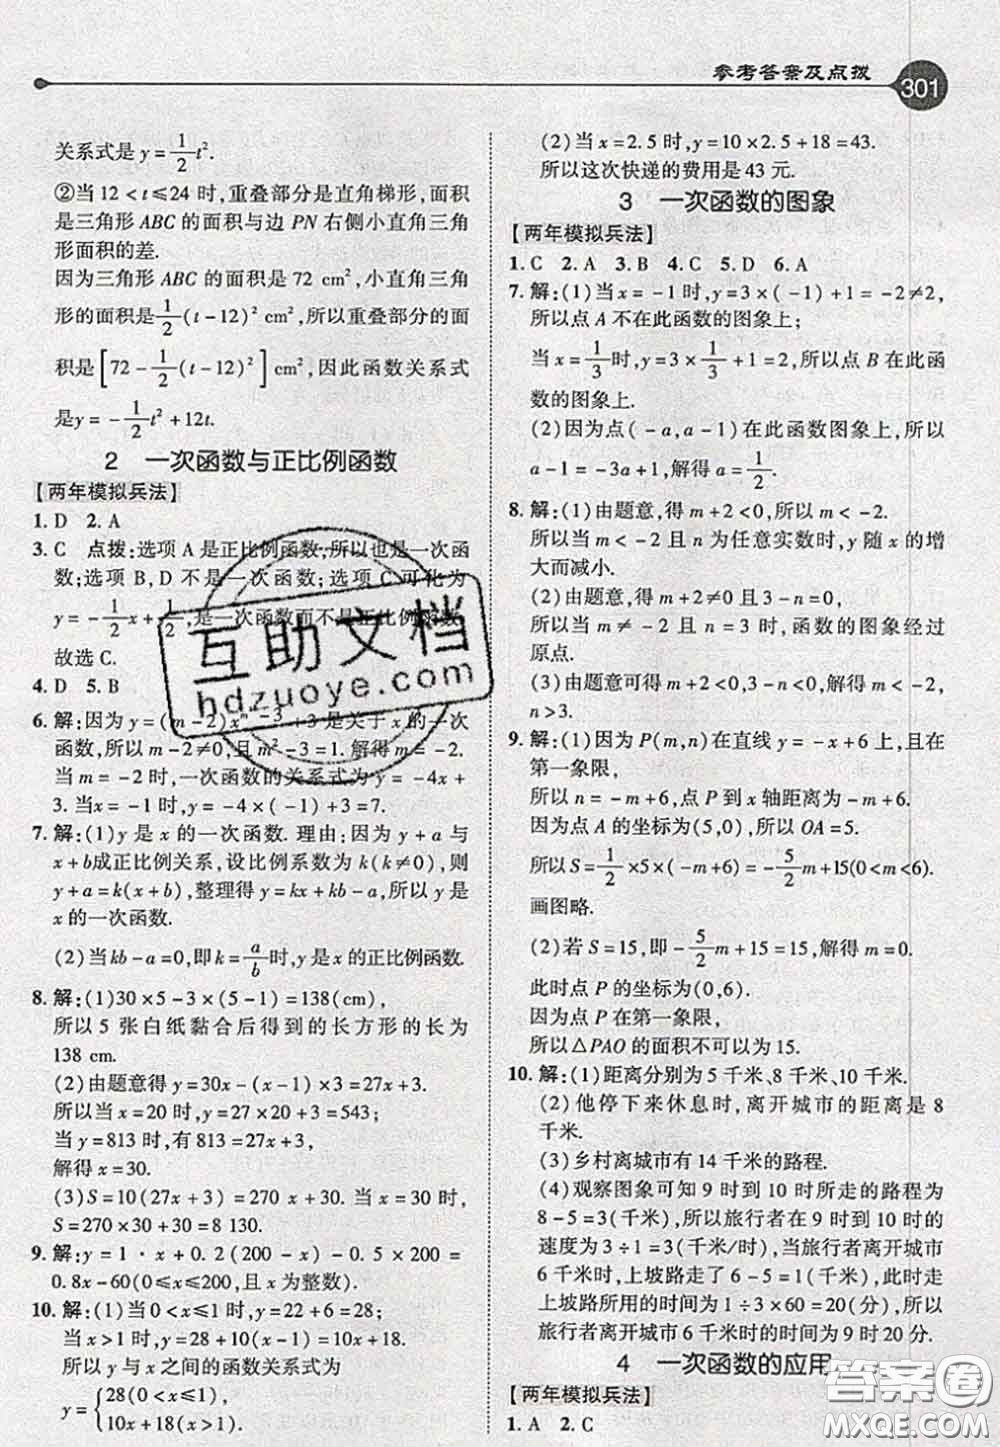 参考答案及点拨
301
关系式是 y = 1/2 t².
②当 12 < t ⩽ 24 时,重叠部分是直角梯形,面积
是三角形 ABC 的面积与边 PN 右侧小直角三角
形面积的差.
因为三角形 ABC 的面积是 72 cm²,小直角三角
形的面积是 1/2 (t - 12)² cm²,所以重叠部分的面
积是 [72 - 1/2 (t - 12)²] cm²,因此函数关系式
是y = - 1/2 t² + 12t.
2 一次函数与正比例函数
【两年模拟兵法】
1. D 2. A
3. C 点拨:选项 A 是正比例函数,所以也是一次函
数;选项 B,D 不是一次函数;选项 C 可化为
y = - 1/2 x + 1/2,是一次函数而不是正比例函数.
故选 C.
4. D 5. B
6. 解:因为 y = (m - 2)x^(m² - 3) + 3 是关于 x 的一次
函数,所以 m - 2 ≠ 0,且 m² - 3 = 1. 解得 m = -2.
当 m = -2 时,一次函数的关系式为 y = -4x +
3. 当 x = -1 时,y = -4 × (-1) + 3 = 7.
7. 解:(1)y 是 x 的一次函数. 理由:因为 y + a 与
x + b成正比例关系,设比例系数为 k(k ≠ 0),则
y + a = k(x + b),整理得 y = kx + kb - a,所以 y 是
x 的一次函数.
(2)当 kb - a = 0,即 k = a/b 时,y 是 x 的正比例函数.
8. 解:(1)30 × 5 - 3 × (5 - 1) = 138(cm),
所以 5 张白纸黏合后得到的长方形的长为
138 cm.
(2)由题意得 y = 30x - (x - 1) × 3 = 27x + 3.
所以当 x = 20 时,y = 27 × 20 + 3 = 543;
当 y = 813 时,有 813 = 27x + 3,
解得 x = 30.
(3)S = 10(27x + 3) = 270x + 30. 当 x = 30 时,
S = 270 × 30 + 30 = 8 130.
9. 解:y = 1 · x + 0. 2(200 - x) - 0. 5 × 200 =
0. 8x - 60(0 ⩽ x ⩽ 200,且 x 为整数).
10. 解:(1)当 0 < x ⩽ 1 时,y = 22 + 6 = 28;
当 x > 1 时,y = 28 + 10(x - 1) = 10x + 18.
所以 y 与 x 之间的函数关系式为
y = { 28(0 < x ⩽ 1),
10x + 18(x > 1).
(2)当 x = 2. 5 时,y = 10 × 2. 5 + 18 = 43.
所以这次快递的费用是 43 元.
3 一次函数的图象
【两年模拟兵法】
1. C 2. A 3. B 4. C 5. D 6. A
7. 解:(1)当 x = -1 时,y = 3 × (-1) + 1 = -2 ≠ 2,
所以点 A 不在此函数的图象上;
当 x = 1/3 时,y = 3 × 1/3 + 1 = 2,所以点 B 在此函
数的图象上.
(2)因为点(-a,a - 1)在此函数图象上,所以
a - 1 = -3a + 1,解得 a = 1/2.
8. 解:(1)由题意,得 m + 2 < 0,所以 m < -2.
所以当 m < -2 且 n 为任意实数时,y 随 x 的增
大而减小.
(2)由题意,得 m + 2 ≠ 0 且 3 - n = 0,
所以当 m ≠ -2 且 n = 3 时,函数的图象经过
原点.
(3)由题意可得 m + 2 < 0,3 - n < 0,解得 m < -2,
n > 3.
9. 解:(1)因为 P(m,n)在直线 y = -x + 6 上,且在
第一象限,
所以 n = -m + 6,点 P 到 x 轴距离为 -m + 6.
因为点 A 的坐标为(5,0),所以 OA = 5.
所以 S = 1/2 × 5 × (-m + 6) = - 5/2 m + 15(0 < m < 6).
画图略.
(2)若 S = 15,即 - 5/2 m + 15 = 15,解得 m = 0.
此时点 P 的坐标为(0,6).
因为点 P 在第一象限,
所以△PAO 的面积不可以为 15.
10. 解:(1)距离分别为 5 千米、8 千米、10 千米.
(2)他停下来休息时,离开城市的距离是 8
千米.
(3)乡村离城市有 14 千米的路程.
(4)观察图象可知 9 时到 10 时所走的路程为
8 - 5 = 3(千米),所以旅行者在 9 时到 10 时的
速度为 3 ÷ 1 = 3(千米/时),当旅行者离开城市
6 千米时,上坡路走了 6 - 5 = 1(千米),此时走
上坡路所用的时间为 1 ÷ 3 × 60 = 20(分),所以
旅行者离开城市 6 千米时的时间为 9 时 20 分.
4 一次函数的应用
【两年模拟兵法】
1. A 2. C
互助文档
hdzuoye.com
答案圈
MXQE.COM